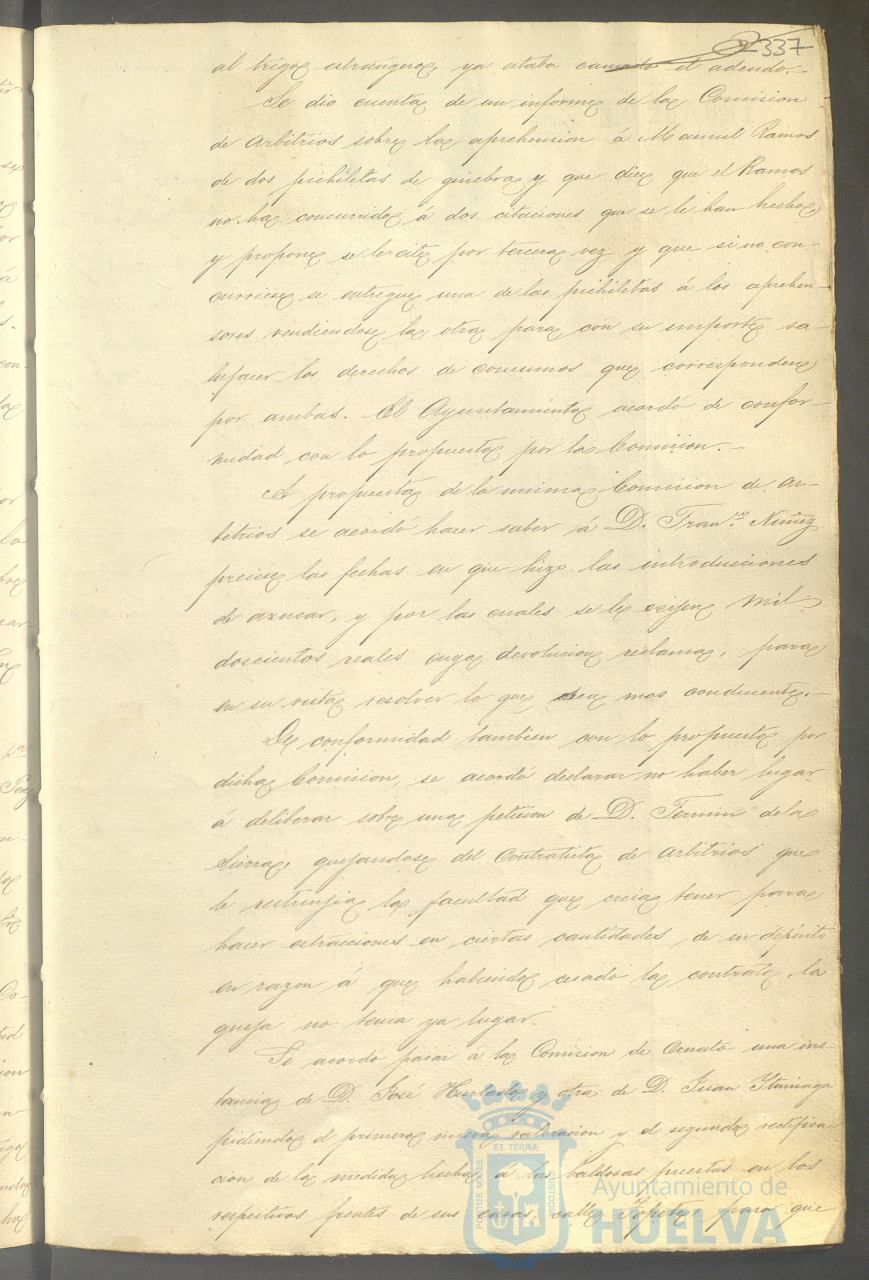 337
al trigo estrangero, ya estaba causado el adeudo.
Se dio cuenta de un informe de la Comision
de arbitrios sobre la aprehension á Manuel Ramos
de dos pichiletas de ginebra y que dice que el Ramos
no ha concurrido á dos citaciones que se le han hecho,
y propone se le cite por tercera vez y que si no con-
curriese se entregue una de las pichiletas á los aprehen-
sores vendiendose la otra para con su importe sa-
tisfacer los derechos de consumos que corresponden
por ambas. El Ayuntamiento acordó de confor-
midad con lo propuesto por la Comision.-
A propuesta de la misma Comision de ar-
bitrios se acordó hacer saber á D. Fran.co Nuñez
precise las fechas en que hizo las introducciones
de azucar, y por las cuales se le exijen mil
doscientos reales cuya devolucion reclama, para
en su vista resolver lo que sea mas conducente.-
De conformidad tambien con lo propuesto por
dicha Comision, se acordó declarar no haber lugar
á deliberar sobre una peticion de D. Fermin de la
Sierra, quejandose del Contratista de arbitrios que
le restrinjia la facultad que creia tener para
hacer estracciones en ciertas cantidades de su depósito
en razon á que habiendo cesado la contrata, la
queja no tenia ya lugar.
Se acordó pasar á la Comision de Ornato una ins-
tancia de D. José Hurtado y otra de D. Juan
pidiendo el primero nueva valoracion y el segundo rectifica
cion de la medida hecha á las baldosas puestas en los
respectivos frentes de sus casas calle para que
PORTUS MARIS ET TERRÆ CUSTODIA
Ayuntamiento de
HUELVA